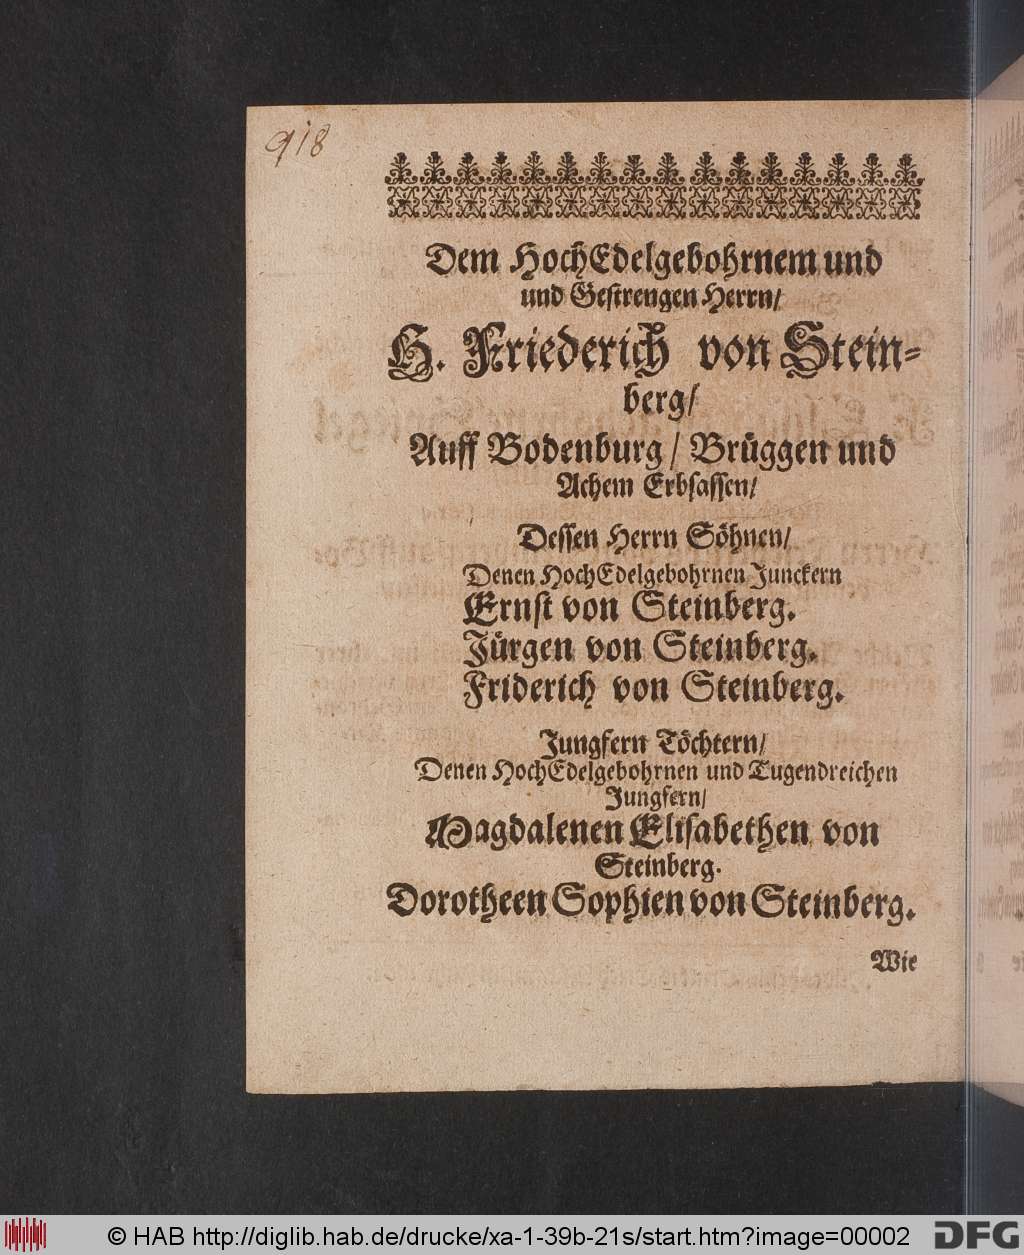 918
Dem HochEdelgebohrnem und
und Gestrengen Herrn/
H. Friederich von Stein-
berg/
Auff Bodenburg/ Brüggen und
Achem Erbsassen/
Dessen Herrn Söhnen/
Denen HochEdelgebohrnen Junckern
Ernst von Steinberg.
Jürgen von Steinberg.
Friderich von Steinberg.
Jungfern Töchtern/
Denen HochEdelgebohrnen und Tugendreichen
Jungfern/
Magdalenen Elisabethen von
Steinberg.
Dorotheen Sophien von Steinberg.
Wie
© HAB http://diglib.hab.de/drucke/xa-1-39b-21s/start.htm?image=00002
DFG